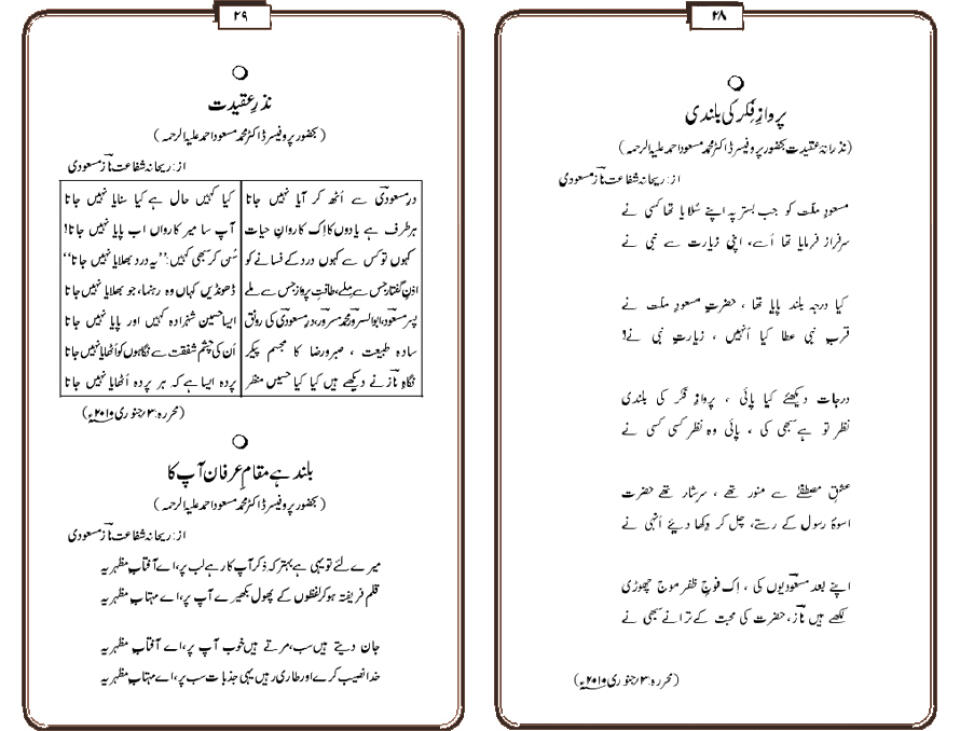 ۲۸
پروازِ فکر کی بلندی
(نذرانۂ عقیدت بحضور پروفیسر ڈاکٹر محمد مسعود احمد علیہ الرحمہ)
از: ریحانہ شفاعت نازؔ مسعودی
مسعودِ ملّت کو جب بستر پہ اپنے سُلایا تھا کسی نے
سرفراز فرمایا تھا اُسے، اپنی زیارت سے نبی نے
کیا درجہ بلند پایا تھا ، حضرتِ مسعودِ ملت نے
قربِ نبی عطا کیا اُنہیں ، زیارتِ نبی نے!
درجات دیکھئے کیا پائی ، پروازِ فکر کی بلندی
نظر تو ہے سبھی کی ، پائی وہ نظر کسی کسی نے
عشقِ مصطفےٰ سے منور تھے ، سرشار تھے حضرت
اسوۂ رسول کے رستے، چل کر دِکھا دیئے اُنہی نے
اپنے بعد مسعودیوں کی ، اِک فوجِ ظفر موج چھوڑی
لکھے ہیں نازؔ، حضرت کی محبت کے ترانے سبھی نے
(محررہ: ۳/جنوری ۲۰۱۹ء)
۲۹
نذرِ عقیدت
(بحضور پروفیسر ڈاکٹر محمد مسعود احمد علیہ الرحمہ)
از: ریحانہ شفاعت نازؔ مسعودی
درِ مسعودیؔ سے اُٹھ کر آیا نہیں جاتا کیا کہیں حال ہے کیا سنایا نہیں جاتا
ہر طرف ہے یادوں کا اِک کاروانِ حیات آپ سا میرِ کارواں اب پایا نہیں جاتا!
کہوں تو کس سے کہوں درد کے فسانے کو سُن کر سبھی کہیں: ’’یہ درد بھلایا نہیں جاتا‘‘
اذنِ گفتار جس سے ملے، طاقتِ پرواز جس سے ملے ڈھونڈیں کہاں وہ رہنما، جو بھلایا نہیں جاتا
پسرِ مسعود، ابوالسرور محمد مسرور، درِ مسعودیؔ کی رونق ایسا حسین شہزادہ کہیں اور پایا نہیں جاتا
سادہ طبیعت ، صبر و رضا کا مجسم پیکر اُن کی چشمِ شفقت سے نگاہوں کو اُٹھایا نہیں جاتا
نگاہِ نازؔ نے دیکھے ہیں کیا کیا حسیں منظر پردہ ایسا ہے کہ ہر پردہ اُٹھایا نہیں جاتا
(محررہ: ۳/جنوری ۲۰۱۹ء)
بلند ہے مقامِ عرفان آپ کا
(بحضور پروفیسر ڈاکٹر محمد مسعود احمد علیہ الرحمہ)
از: ریحانہ شفاعت نازؔ مسعودی
میرے لئے تو یہی ہے بہتر کہ ذکر آپ کا رہے لب پر، اے آفتابِ مظہریہ
قلم فریفتہ ہو کر لفظوں کے پھول بکھیرے آپ پر، اے مہتابِ مظہریہ
جان دیتے ہیں سب، مرتے ہیں خوب آپ پر، اے آفتابِ مظہریہ
خدا نصیب کرے اور طاری رہیں یہی جذبات سب پر، اے مہتابِ مظہریہ